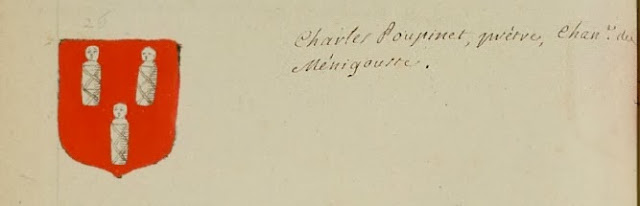 26
Charles Poupinet, prêtre, Chan.ⁿᵉ de
Ménigouste.